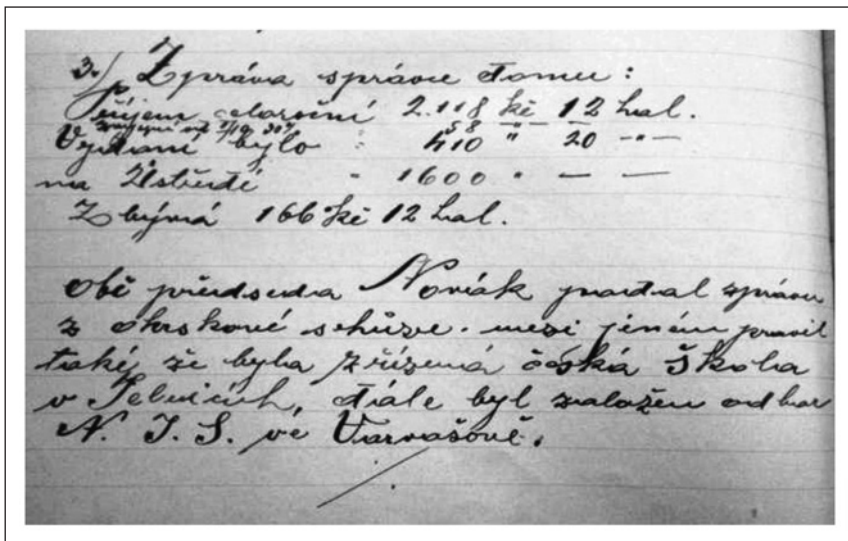 3.) Zpráva správce domu:
Příjem celoroční 2.118 kč 12 hal.
Vydání bylo : 410 " 20 -"-
na Ústředí " 1600 " — —
Zbývá 166 kč 12 hal.
obě předseda Novák podal zprávu
z okrskové schůze. mezi jiném pravil
také že byla zřízená česká škola
v Telnicích, dále byl založen odbor
N. J. S. ve Varvašově.